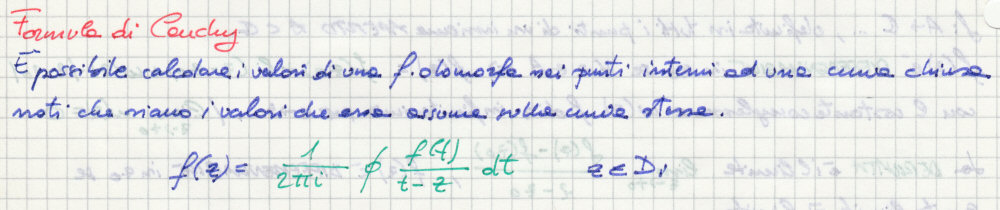 Formula di Cauchy
È possibile calcolare i valori di una f. olomorfa nei punti interni ad una curva chiusa
noti che siano i valori che essa assume sulla curva stessa.
f(z) = 1/2πi ∮ f(t)/t-z dt z ∈ Di